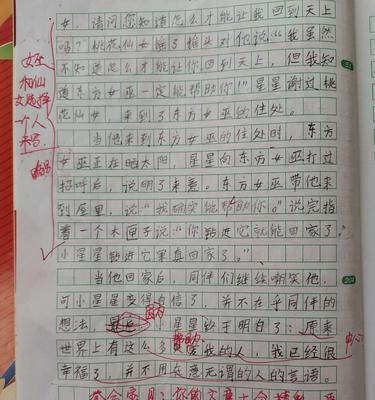 女，请问您知道怎么才能让我回到天上
吗？桃花仙女摇了摇头对他说“我虽然
不知道怎么才能让你回到天上，但我知
道东方女巫一定能帮助你！”星星谢过桃
花仙女，来到了东方女巫的住处。
当他来到东方女巫的住处时，东方
女巫正在晒太阳，星星向东方女巫打过
招呼后，说明了来意。东方女巫带他来
到屋里，说“我确实能帮助你。”说完指
着一个木匣子说“你钻进它就能回家了。”
小星星钻进它里真回家了。”
当他回家后，同伴们继续嘲笑他，
可小星星变得自信了，并不在乎同伴的
想法，小星星终于明白了：原来
世界上有这么多爱我的人，我已经很
幸福了，并不用在意无谓的人的言语。
女巫
和仙
女选择
一个人
来写。
因为
帮助
中心